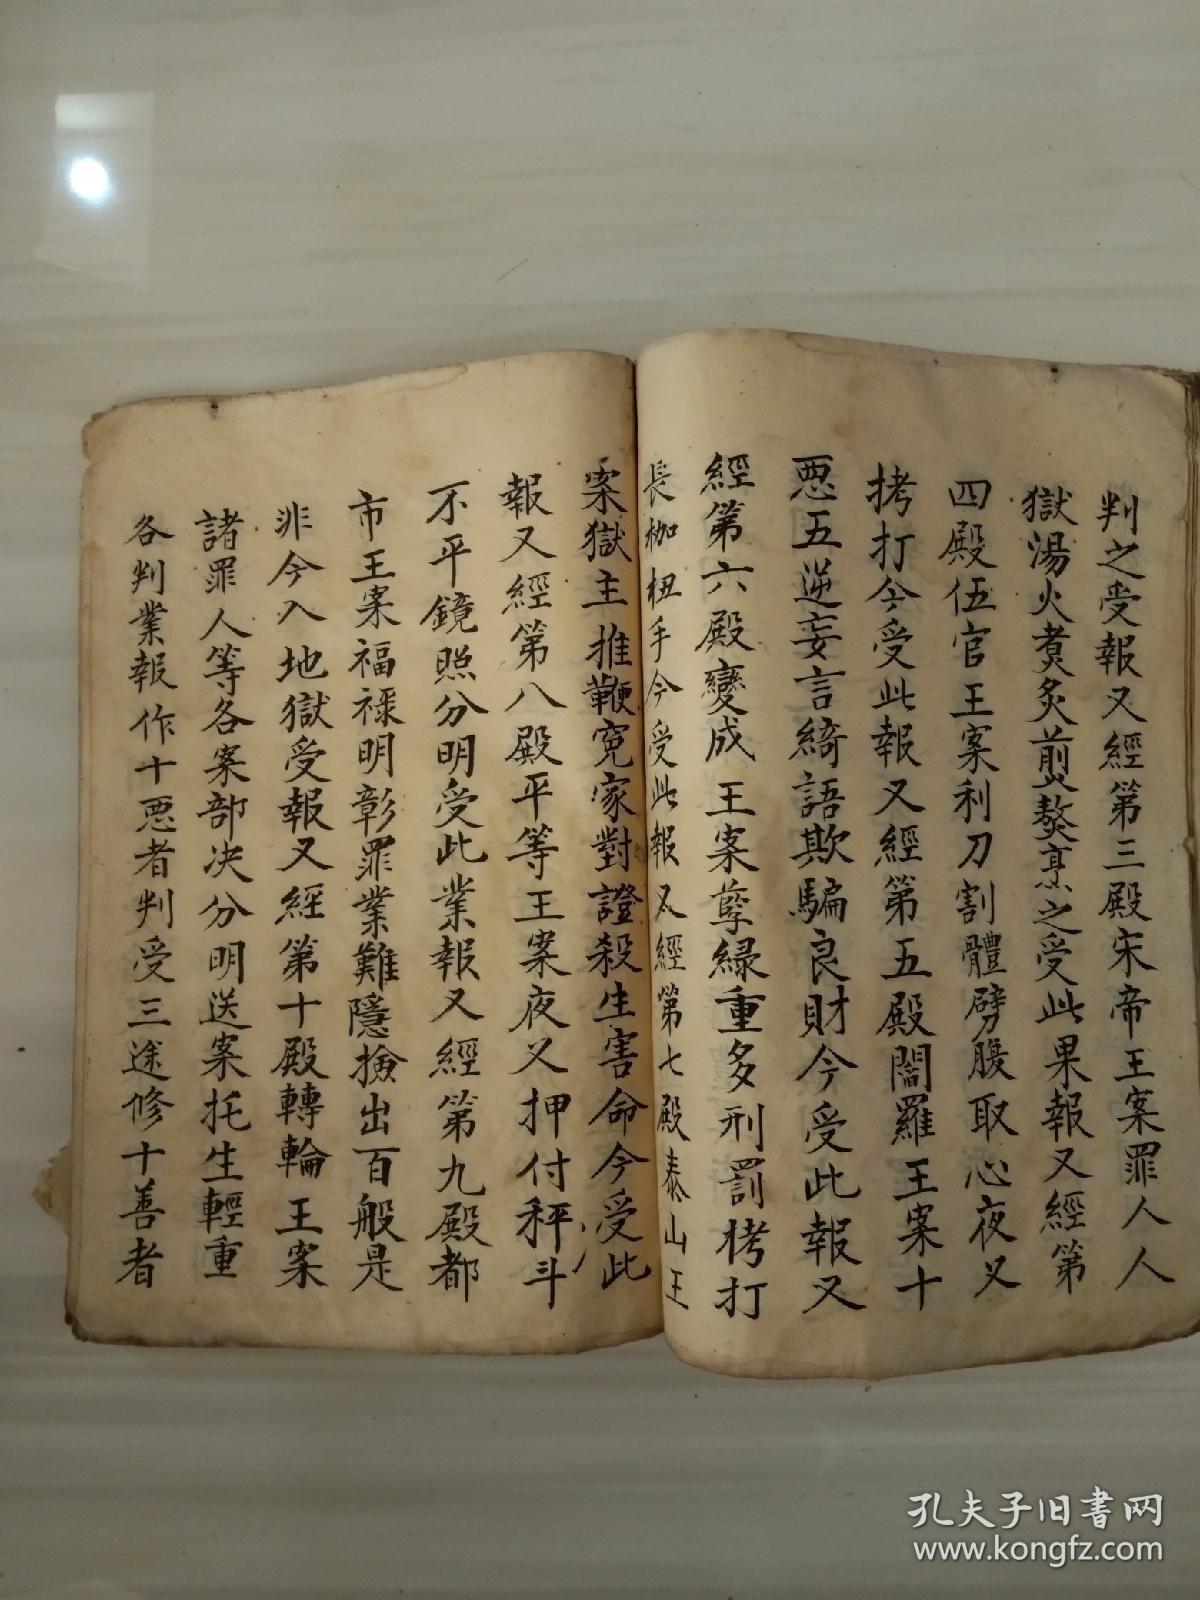 判之受報又經第三殿宋帝王案罪人人
獄湯火煑炙煎熬烹之受此果報又經第
四殿伍官王案利刀割體劈腹取心夜叉
拷打今受此報又經第五殿閻羅王案十
惡五逆妄言綺語欺騙良財今受此報又
經第六殿變成王案孽緣重多刑罰栲打
長枷杻手今受此報又經第七殿泰山王
案獄主推鞭寃家對證殺生害命今受此
報又經第八殿平等王案夜叉押付秤斗
不平鏡照分明受此業報又經第九殿都
市王案福祿明彰罪業難隱撿出百般是
非今入地獄受報又經第十殿轉輪王案
諸罪人等各案部决分明送案托生輕重
各判業報作十惡者判受三途修十善者
孔夫子旧书网
www.kongfz.com